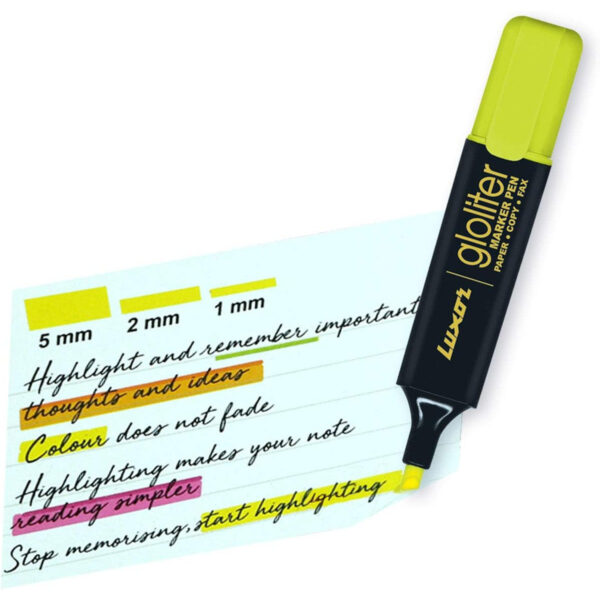 5 mm 2 mm 1 mm
Highlight and remember important
thoughts and ideas
Colour does not fade
Highlighting makes your note
reading simpler
Stop memorising, start highlighting
Luxor gloliter
MARKER PEN
PAPER • COPY • FAX